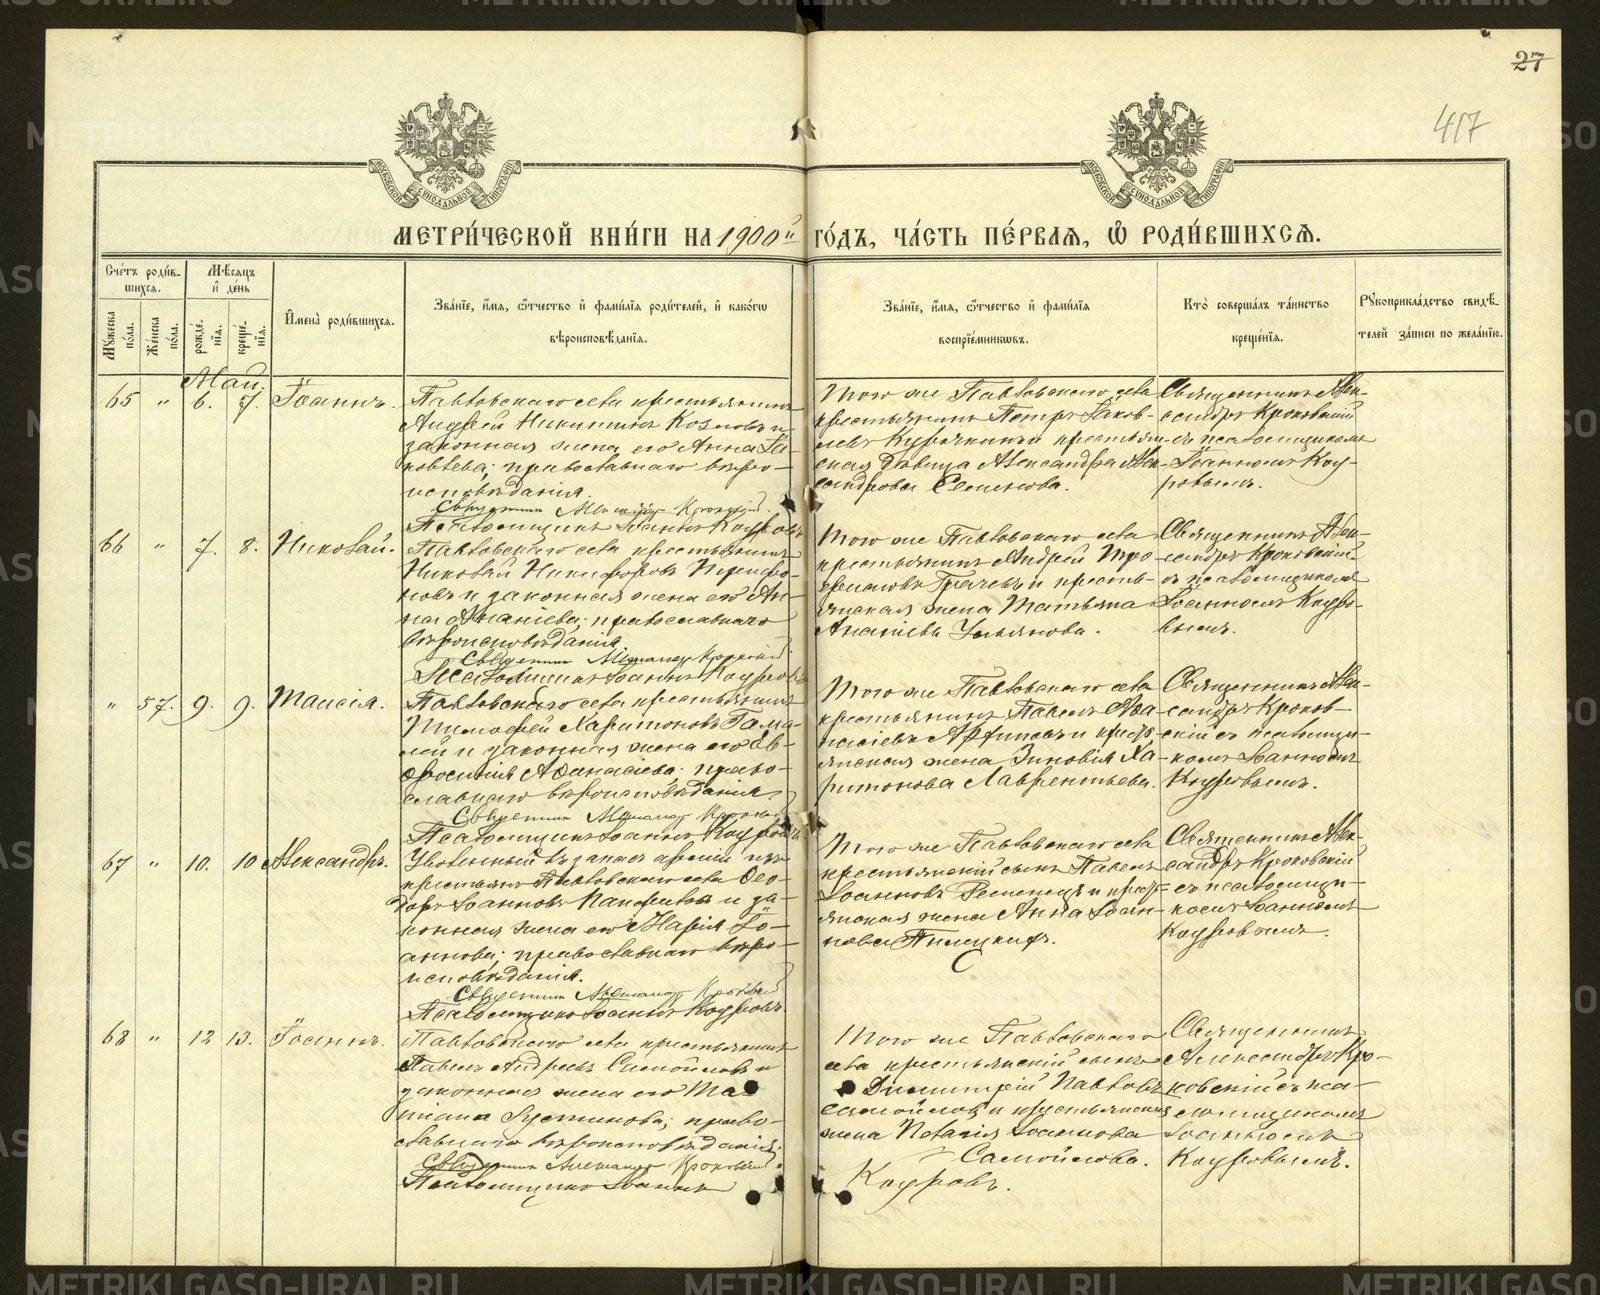 27
417
МЕТРИ́ЧЕСКОЙ КНИ́ГИ НА 1900й ГО́ДЪ, ЧА́СТЬ ПЕ́РВАЯ, Ѡ҆ РОДИ́ВШИХСЯ.
Сче́тъ роди́в-
шихся.
Мѣсяцъ
и҆ де́нь
Мꙋжеска
по́ла.
Же́нска
по́ла.
рожде́-
нїя.
креще́-
нїя.
И҆мена̀ роди́вшихся.
Зва́нїе, и҆́мя, ѻ҆́тчество и҆ фами́лїя роди́телей, и҆ како́гѡ
вѣроисповѣ́данїя.
Зва́нїе, и҆́мя, ѻ҆́тчество и҆ фами́лїя
воспрїе́мникѡвъ.
Кто̀ соверша́лъ та́инство
креще́нїя.
Рꙋкоприкла́дство свидѣ́-
телей за́писи по жела́нїю.
Май.
65 " 6. 7. Іоаннъ.
Павловскаго села крестьянинъ
Андрей Никитинъ Козловъ и
законная жена его Анна Іа-
ковлева; православнаго вѣро-
исповѣданія.
Священник Александр Кроковский.
Псаломщикъ Іоаннъ Кауровъ
Того же Павловскаго села
крестьянинъ Петръ Іаков-
левъ Курочкинъ и крестьян-
ская дѣвица Александра Алек-
сандрова Семенова.
Священникъ Алек-
сандръ Кроковскій
съ псаломщикомъ
Іоанномъ Кау-
ровымъ.
66 " 7. 8. Николай.
Павловскаго села крестьянинъ
Николай Никифоровъ
и законная жена его Ан-
на Ананіева; православнаго
вѣроисповѣданія.
Священник Александр Кроковский
Псаломщикъ Іоаннъ Кауровъ
Того же Павловскаго села
крестьянинъ Андрей Тро-
фимовъ Грачевъ и кресть-
янская жена Татьяна
Ананіева Ульянова.
Священникъ Алек-
сандръ Кроковскій
съ псаломщикомъ
Іоанномъ Кауро-
вымъ.
" 57. 9. 9. Таисія.
Павловскаго села крестьянинъ
Тимофей Харитоновъ
и законная жена его Ев-
фросинія Аѳанасіева; право-
славнаго вѣроисповѣданія.
Священник Александр Кроковский
Псаломщикъ Іоаннъ Кауровъ
Того же Павловскаго села
крестьянинъ Павелъ Аѳа-
насіевъ и кресть-
янская жена Зиновія Ха-
ритонова Лаврентьева.
Священникъ Алек-
сандръ Кроков-
скій съ псаломщи-
комъ Іоанномъ
Кауровымъ.
67 " 10. 10 Александръ.
Уволенный въ запасъ арміи изъ
крестьянъ Павловскаго села Ѳео-
доръ Іоанновъ Панфиловъ и за-
конная жена его Марія Іо-
аннова; православнаго вѣро-
исповѣданія.
Священник Александр Кроковский
Псаломщикъ Іоаннъ Кауровъ.
Того же Павловскаго села
крестьянскій сынъ Павелъ
Іоанновъ и кресть-
янская жена Анна Іоан-
нова
Священникъ Алек-
сандръ Кроковскій
съ псаломщи-
комъ Іоанномъ
Кауровымъ.
68 " 12 13. Іоаннъ.
Павловскаго села крестьянинъ
Павелъ Андреевъ Самойловъ и
законная жена его Та-
тіана Іустинова; право-
славнаго вѣроисповѣданія.
Священник Александр Кроковский.
Псаломщикъ Іоаннъ
Кауровъ.
Того же Павловскаго
села крестьянскій сынъ
Димитрій Павловъ
Самойловъ и крестьянская
жена Наталія Іоаннова
Самойлова.
Священникъ
Александръ Кро-
ковскій съ пса-
ломщикомъ
Іоанномъ
Кауровымъ.